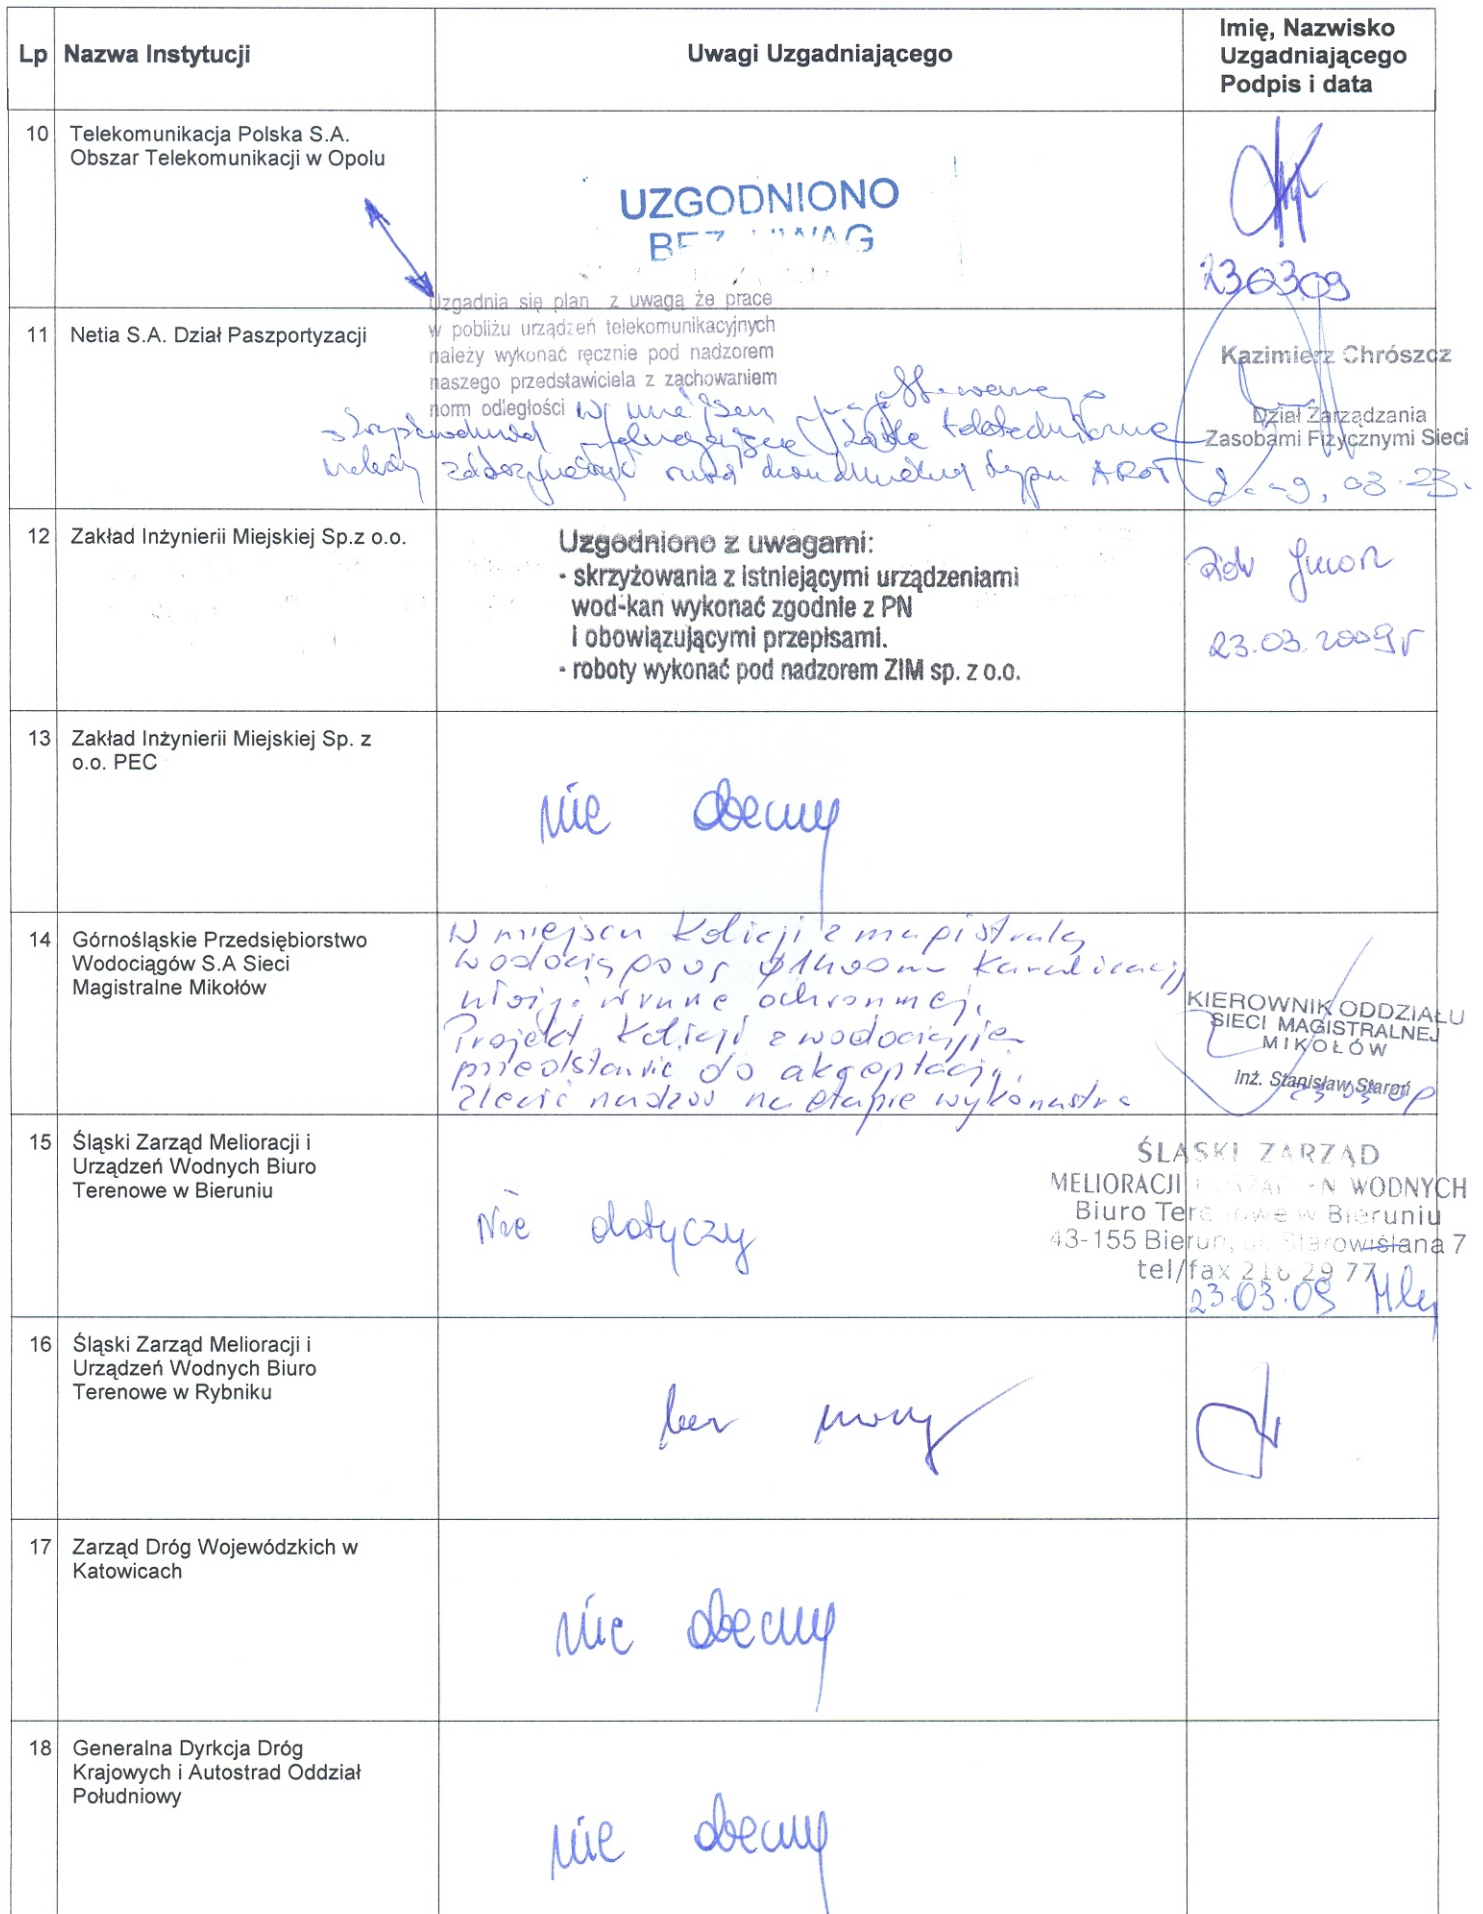 Lp Nazwa Instytucji Uwagi Uzgadniającego Imię, Nazwisko
Uzgadniającego
Podpis i data
10 Telekomunikacja Polska S.A.
Obszar Telekomunikacji w Opolu
UZGODNIONO
BEZ UWAG
230309
11 Netia S.A. Dział Paszportyzacji
Uzgadnia się plan z uwagą że prace
w pobliżu urządzeń telekomunikacyjnych
należy wykonać ręcznie pod nadzorem
naszego przedstawiciela z zachowaniem
norm odległości W miejscu projektowanego
skrzyżowania kable teletechniczne
należy zabezpieczyć rurą dwudzielną typu AROT
Kazimierz Chrószcz
Dział Zarządzania
Zasobami Fizycznymi Sieci
03.23.
12 Zakład Inżynierii Miejskiej Sp.z o.o.
Uzgodniono z uwagami:
- skrzyżowania z istniejącymi urządzeniami
wod-kan wykonać zgodnie z PN
i obowiązującymi przepisami.
- roboty wykonać pod nadzorem ZIM sp. z o.o.
23.03.2009r
13 Zakład Inżynierii Miejskiej Sp. z
o.o. PEC
nie obecny
14 Górnośląskie Przedsiębiorstwo
Wodociągów S.A Sieci
Magistralne Mikołów
W miejscu kolizji z magistralą
wodociągową ø1400mm kanalizację
ułożyć w rurze ochronnej.
Projekt kolizji z wodociągiem
przedstawić do akceptacji.
Zlecić nadzór na etapie wykonastwa
KIEROWNIK ODDZIAŁU
SIECI MAGISTRALNEJ
MIKOŁÓW
inż. Stanisław Staroń
23 03 09
15 Śląski Zarząd Melioracji i
Urządzeń Wodnych Biuro
Terenowe w Bieruniu
Nie dotyczy
ŚLĄSKI ZARZĄD
MELIORACJI I URZĄDZEŃ WODNYCH
Biuro Terenowe w Bieruniu
43-155 Bieruń, ul. Starowiślana 7
tel/fax 216 29 77
23.03.09
16 Śląski Zarząd Melioracji i
Urządzeń Wodnych Biuro
Terenowe w Rybniku
bez uwag
17 Zarząd Dróg Wojewódzkich w
Katowicach
nie obecny
18 Generalna Dyrkcja Dróg
Krajowych i Autostrad Oddział
Południowy
nie obecny